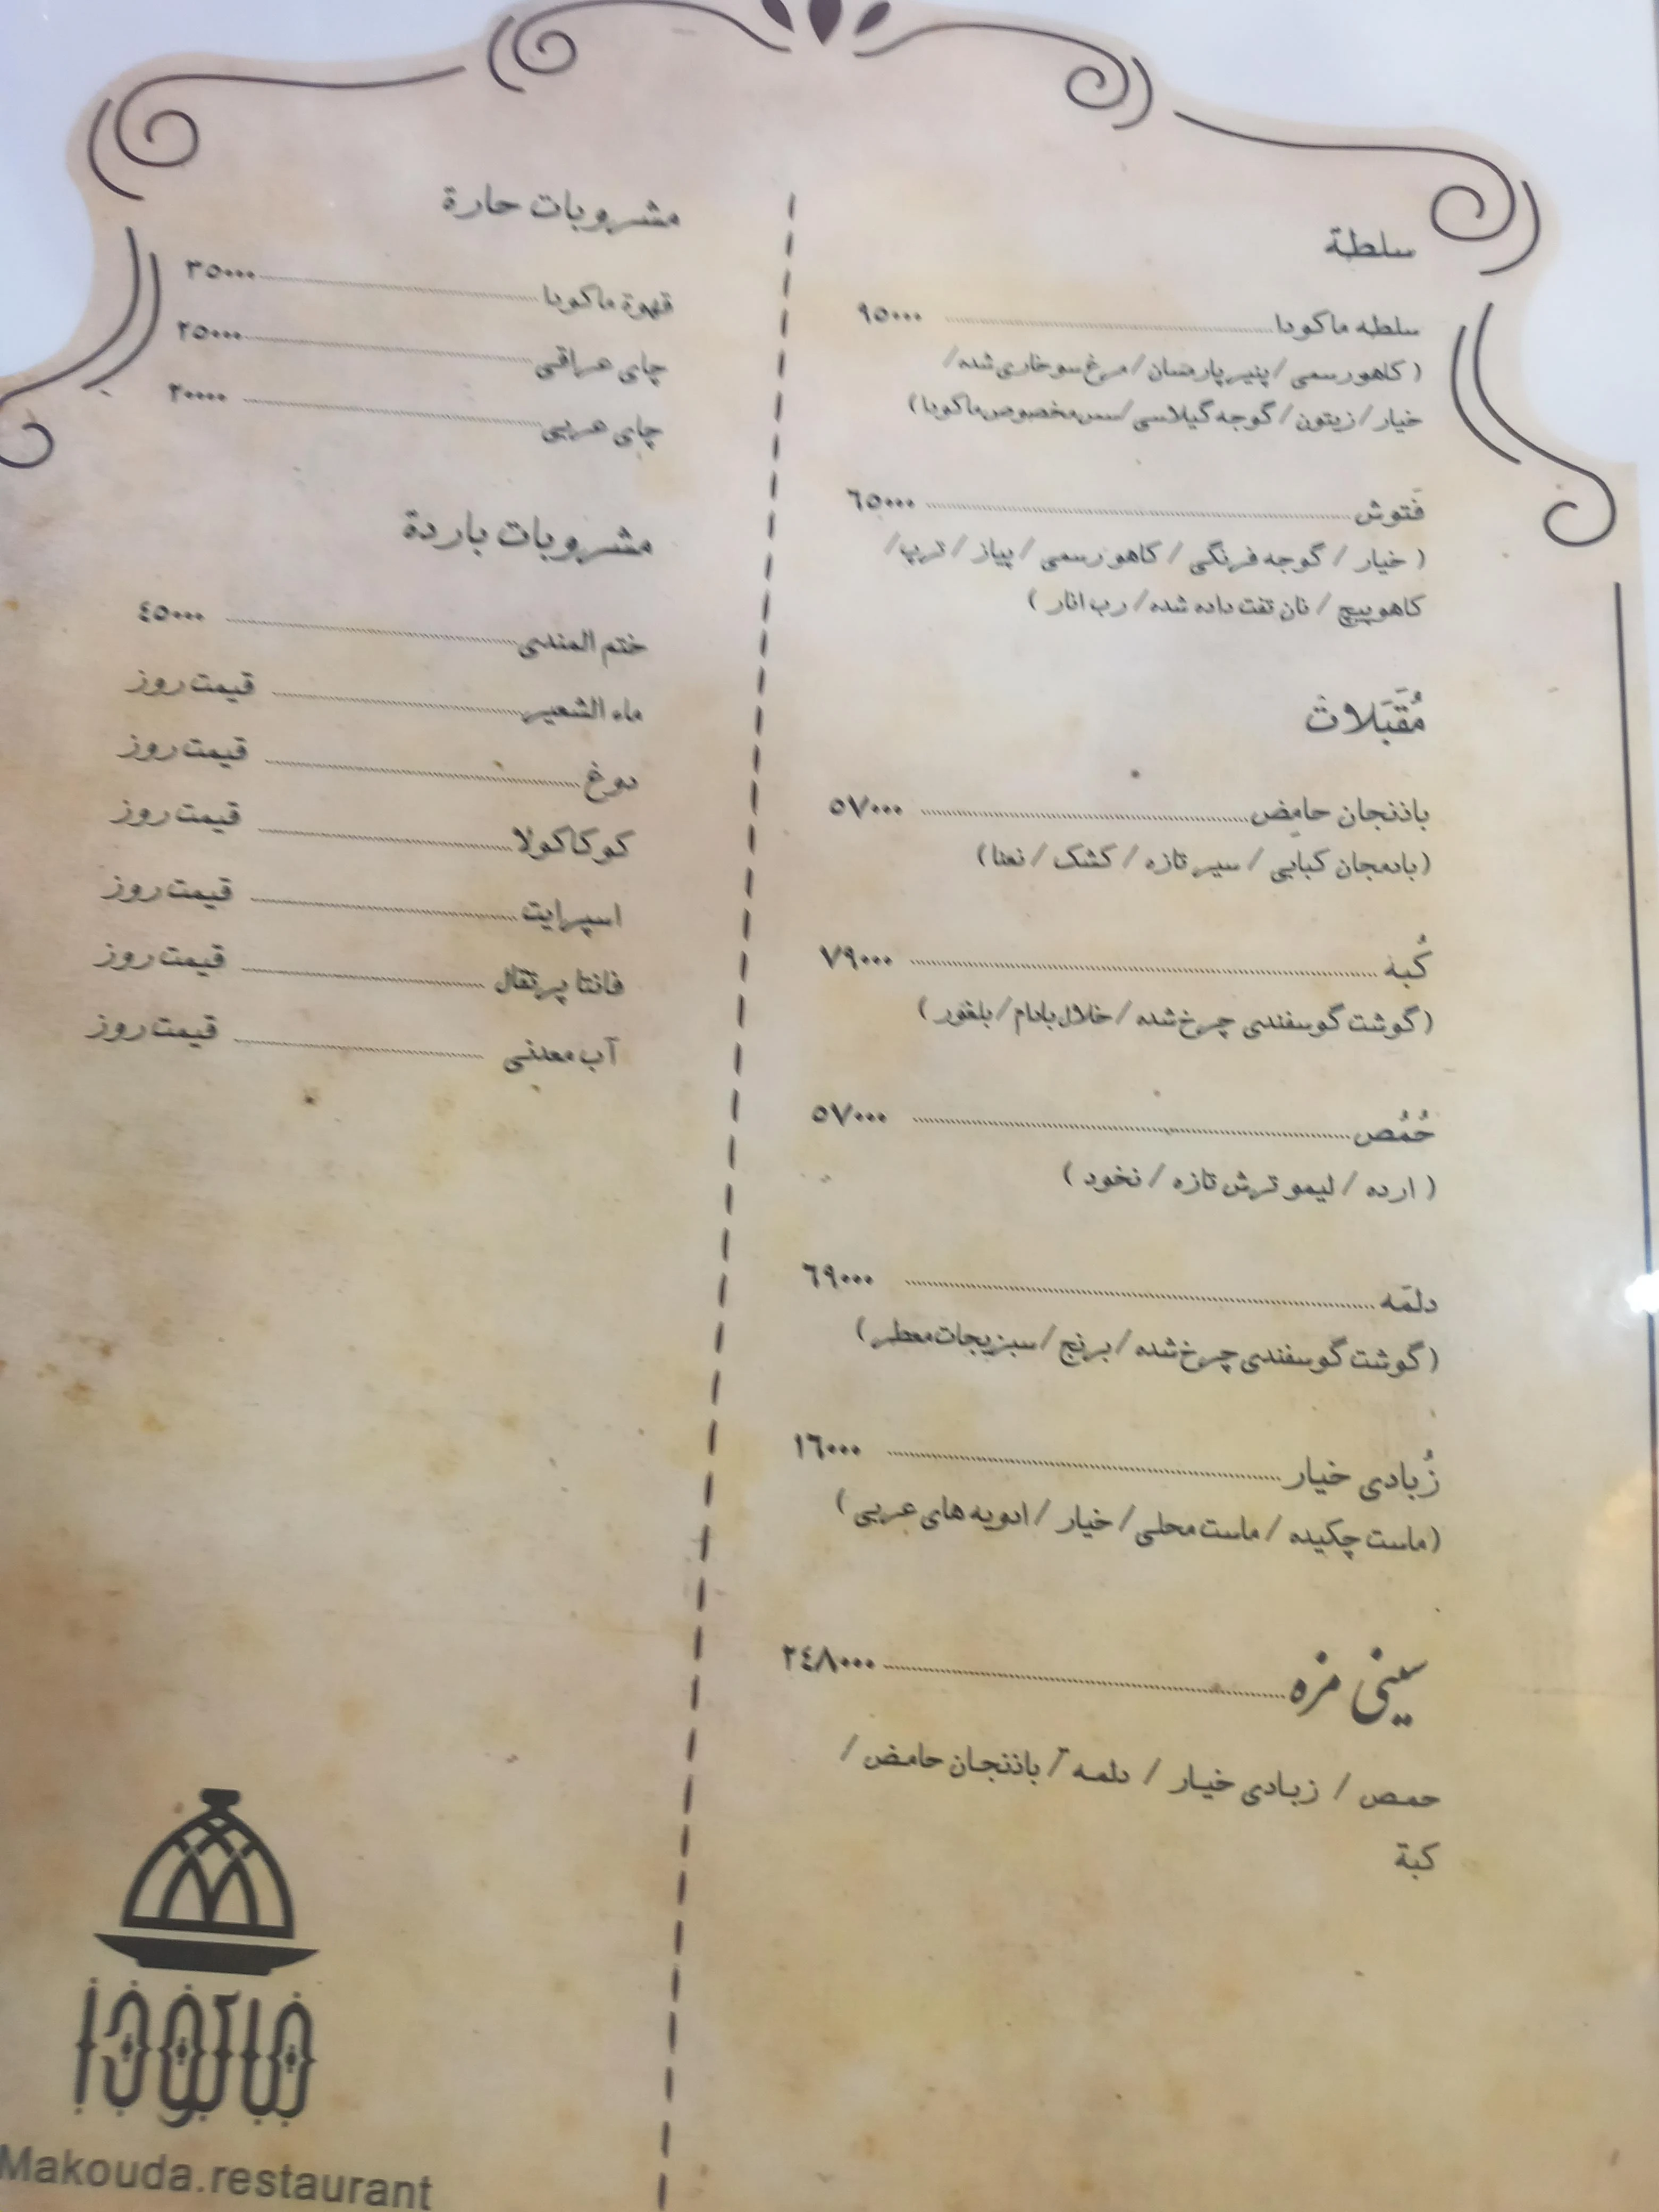 سلطة
سلطه ماکودا ۹۵۰۰۰
( کاهو رسمی / پنیر پارمسان / مرغ سوخاری شده /
خیار / زیتون / گوجه گیلاسی / سس مخصوص ماکودا )
فَتوش ٦٥٠٠٠
( خیار / گوجه فرنگی / کاهو رسمی / پیاز / تربچه /
کاهو پیچ / نان تفت داده شده / رب انار )
مُقَبَلات
باذنجان حامِض ٥٧٠٠٠
( بادمجان کبابی / سیر تازه / کشک / نعنا )
کُبه ٧٩٠٠٠
( گوشت گوسفندی چرخ شده / خلال بادام / بلغور )
حُمُص ٥٧٠٠٠
( ارده / لیمو ترش تازه / نخود )
دلمَه ٦٩٠٠٠
( گوشت گوسفندی چرخ شده / برنج / سبزیجات معطر )
زُبادی خیار ١٦٠٠٠
( ماست چکیده / ماست محلی / خیار / ادویه های عربی )
سینی مزه ٢٤٨٠٠٠
حمص / زبادی خیار / دلمه / باذنجان حامض /
کبة
مشروبات حارة
قهوة ماکودا ٣٥٠٠٠
چای عراقی ٢٥٠٠٠
چای عربی ٢٠٠٠٠
مشروبات باردة
ختم المندی ٤٥٠٠٠
ماء الشعیر قیمت روز
دوغ قیمت روز
کوکاکولا قیمت روز
اسپرایت قیمت روز
فانتا پرتقال قیمت روز
آب معدنی قیمت روز
ماکودا
Makouda.restaurant